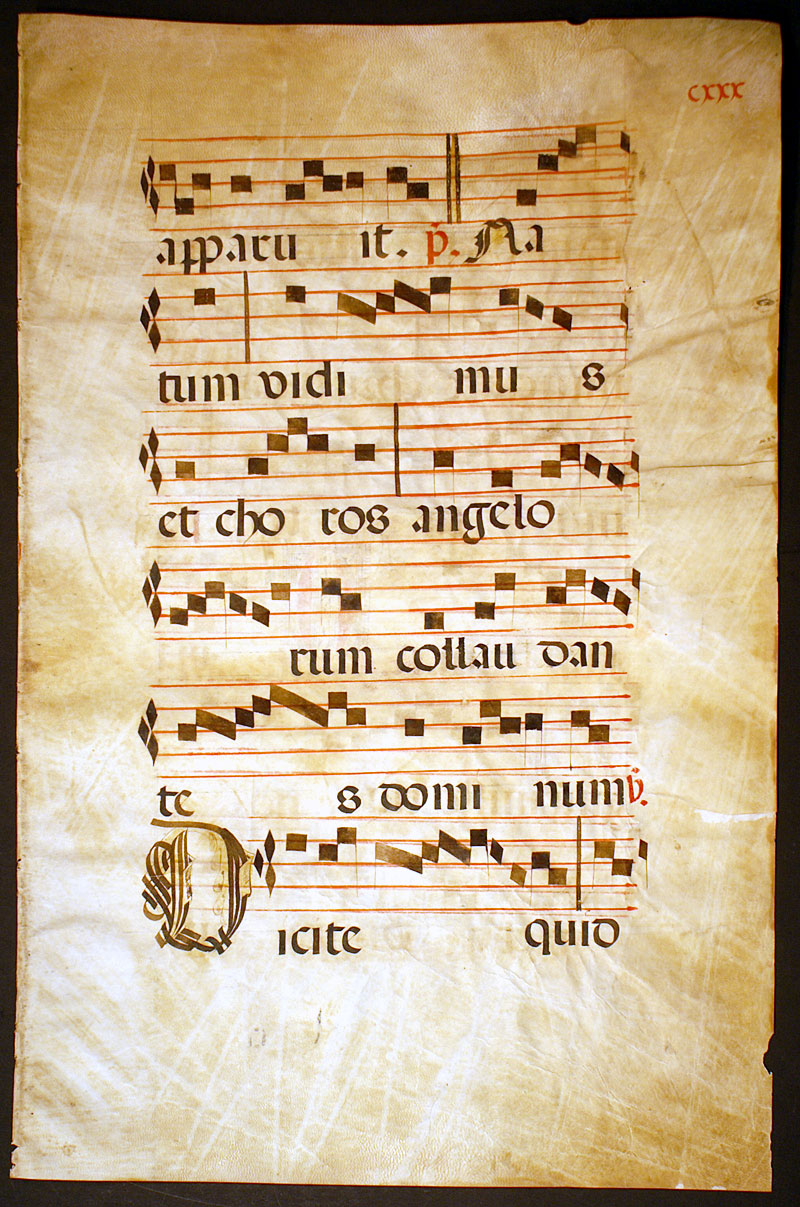 cxxx
apparu it. p. Na
tum vidi mu s
et cho ros angelo
rum collau dan
te s domi num v.
Dicite quid